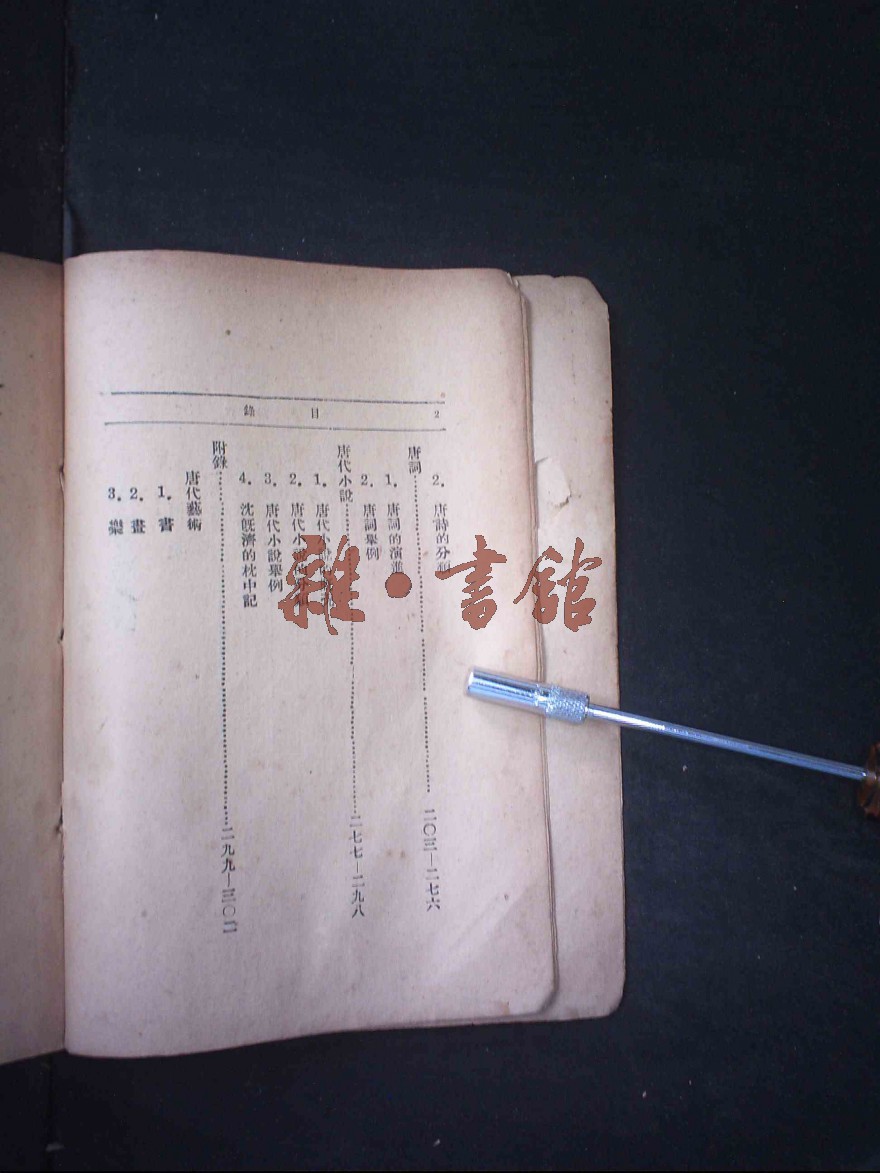 2 目錄
2. 唐詩的分
唐詞……二〇三—二七六
1. 唐詞的演進
2. 唐詞舉例
唐代小說……二七七—二九八
1. 唐代小
2. 唐代小
3. 唐代小說舉例
4. 沈旣濟的枕中記
附錄……二九九—三〇二
唐代藝術
1. 書
2. 畫
3. 樂
雜·書館